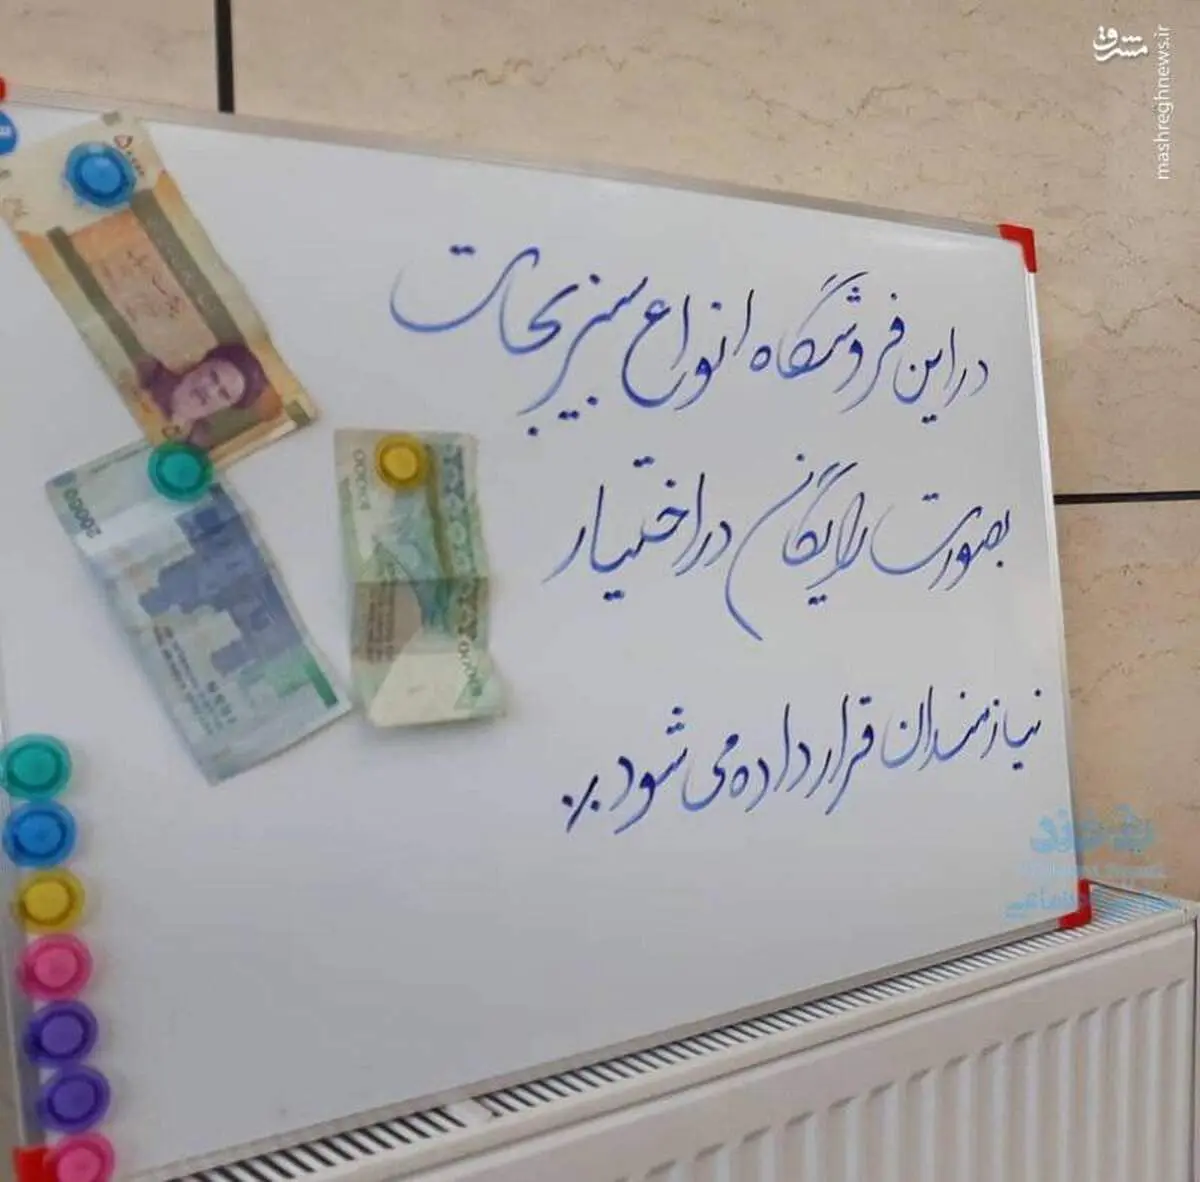 مشرق
mashreghnews.ir
در این فروشگاه انواع سبزیجات
بصورت رایگان در اختیار
نیازمندان قرار داده می شود ٪
20000